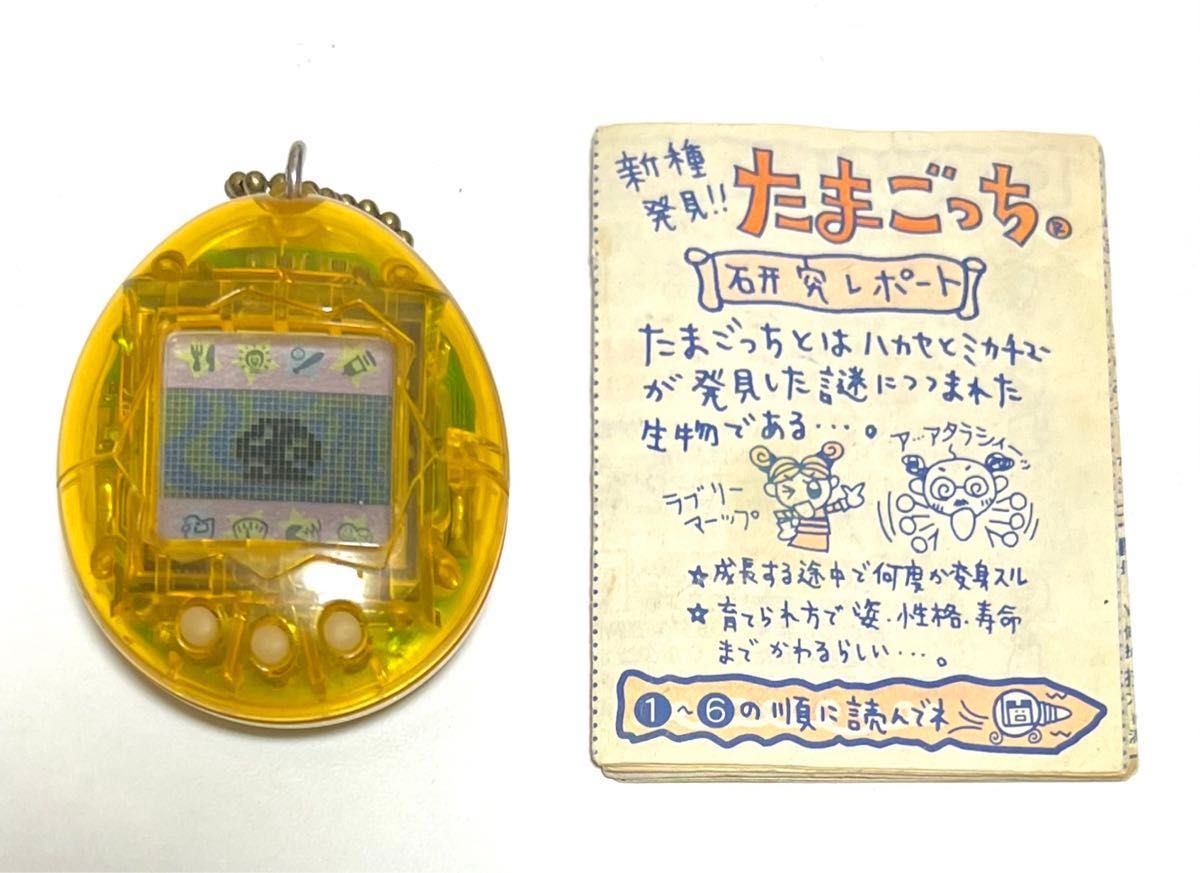 新種
発見!!
たまごっち®
研究レポート
たまごっちとはハカセとミカチュー
が発見した謎につつまれた
生物である…。
ア…アタラシィーッ
ラブリー
マーップ
☆成長する途中で何度か変身スル
☆育てられ方で姿・性格・寿命
までかわるらしい…。
1~6の順に読んでネ